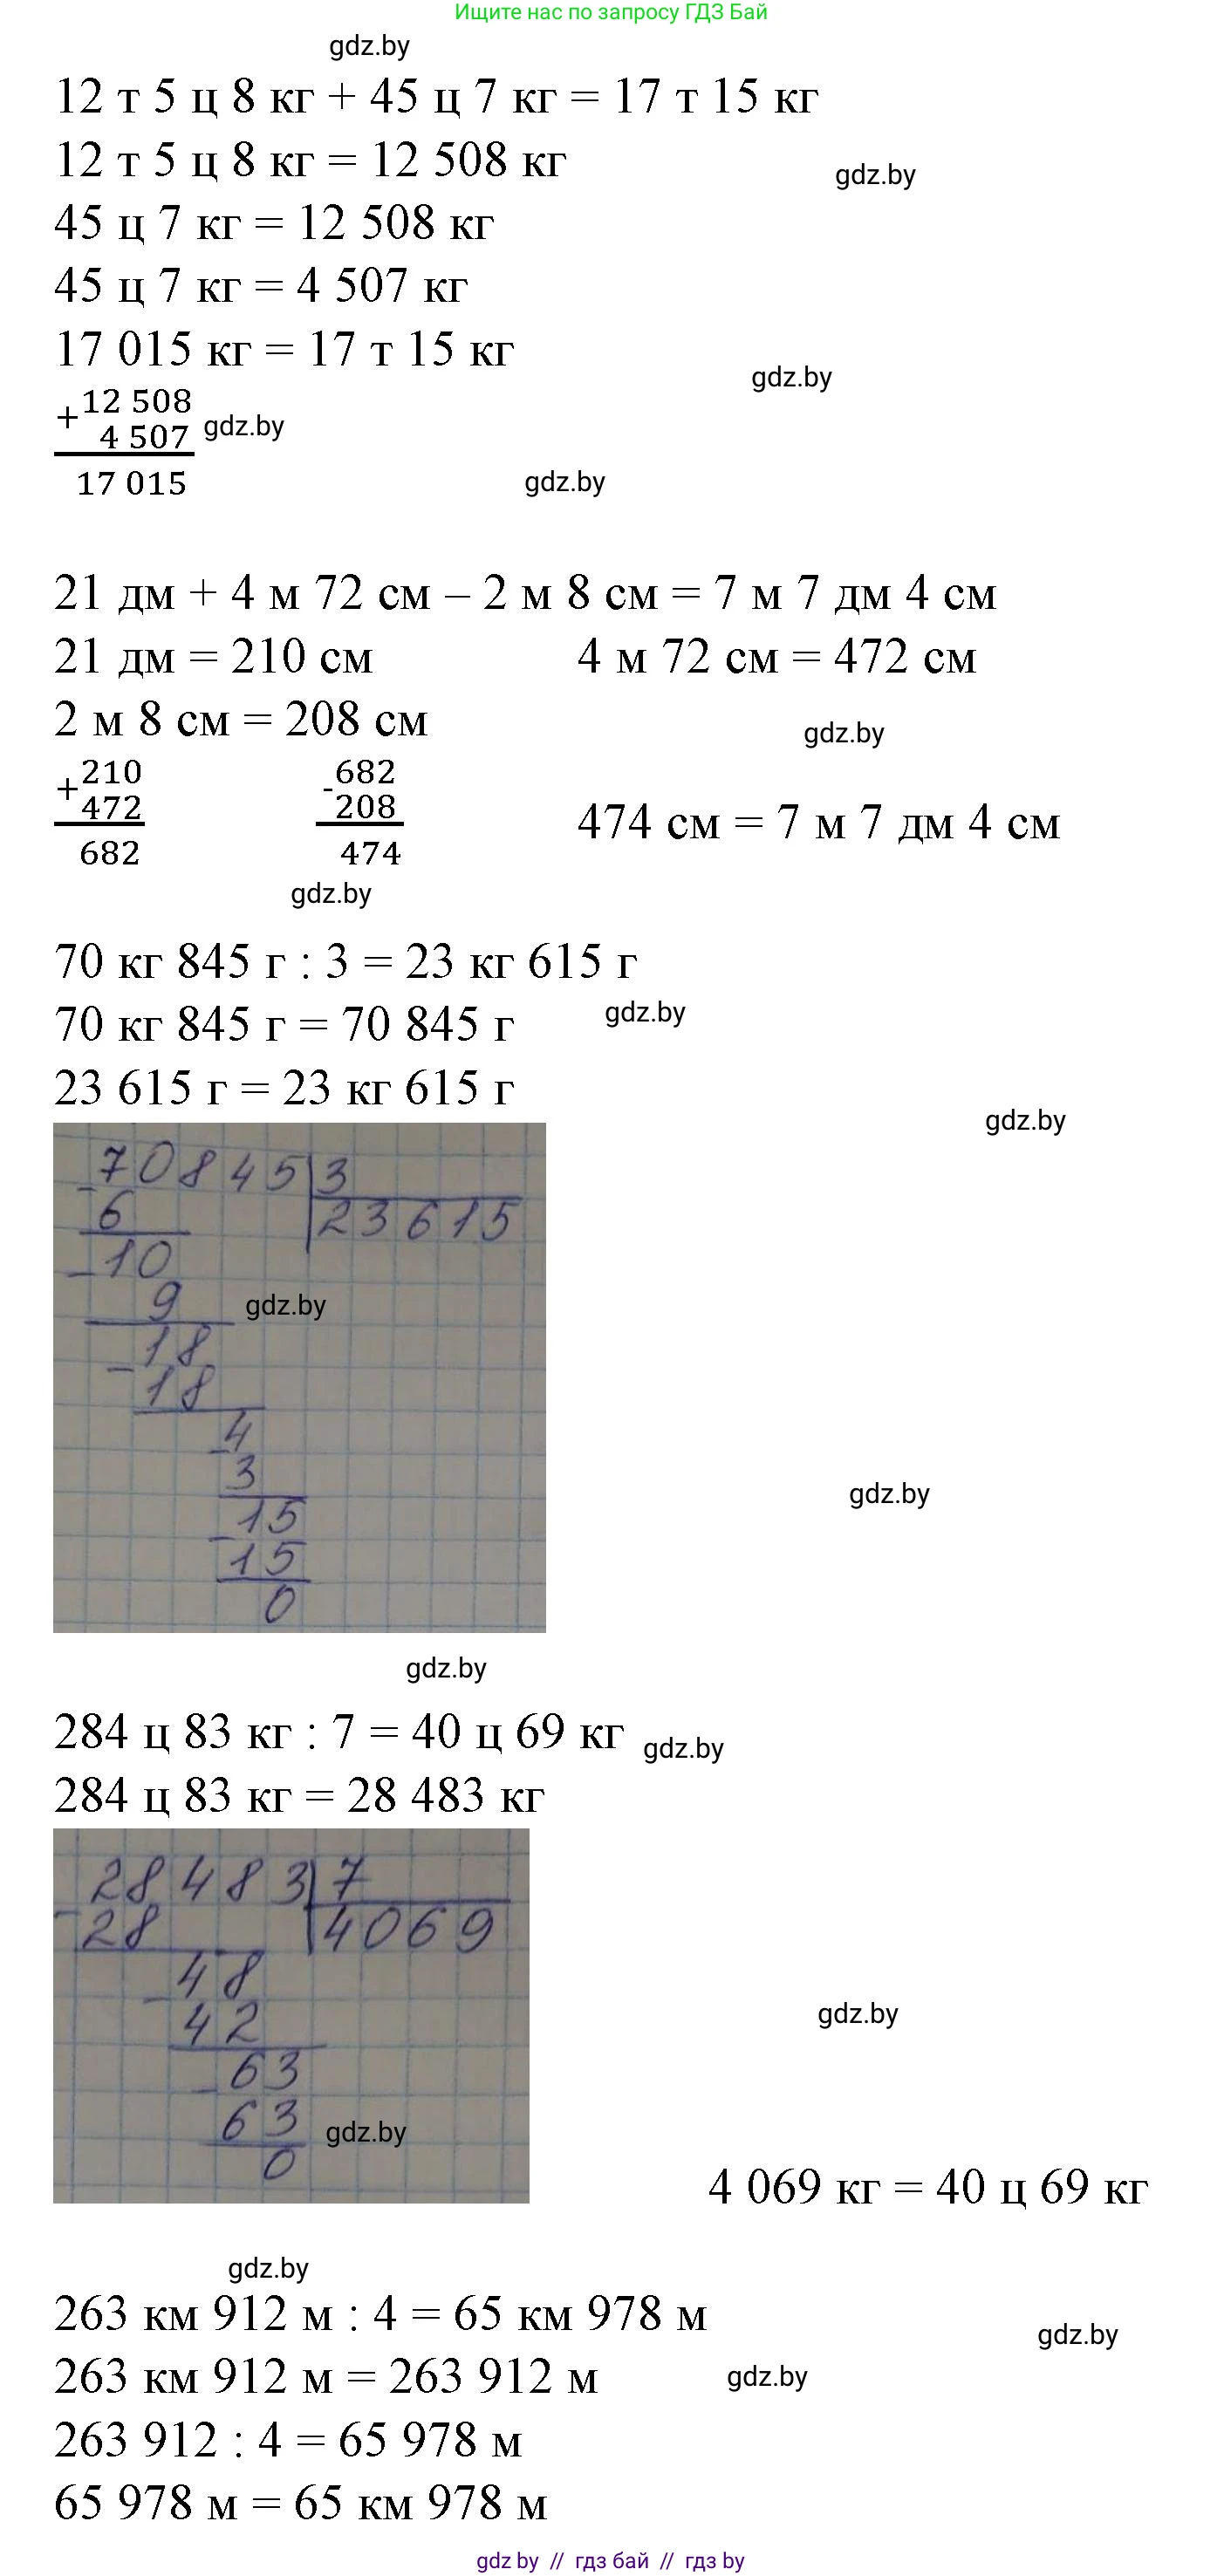 Ищите нас по запросу ГДЗ Бай
gdz.by
12 т 5 ц 8 кг + 45 ц 7 кг = 17 т 15 кг
12 т 5 ц 8 кг = 12 508 кг
gdz.by
45 ц 7 кг = 12 508 кг
45 ц 7 кг = 4 507 кг
17 015 кг = 17 т 15 кг
gdz.by
+12 508
4 507 gdz.by
17 015
gdz.by
21 дм + 4 м 72 см – 2 м 8 см = 7 м 7 дм 4 см
21 дм = 210 см 4 м 72 см = 472 см
2 м 8 см = 208 см
gdz.by
+210 -682
472 208
474 см = 7 м 7 дм 4 см
682 474
gdz.by
70 кг 845 г : 3 = 23 кг 615 г
70 кг 845 г = 70 845 г
gdz.by
23 615 г = 23 кг 615 г
gdz.by
-70845 3
6 23615
-10
9 gdz.by
-18
18
-4
3
gdz.by
-15
15
0
gdz.by
284 ц 83 кг : 7 = 40 ц 69 кг
gdz.by
284 ц 83 кг = 28 483 кг
-28483 7
28 4069
-48
42
gdz.by
-63
63 gdz.by
0
4 069 кг = 40 ц 69 кг
gdz.by
263 км 912 м : 4 = 65 км 978 м
gdz.by
263 км 912 м = 263 912 м
gdz.by
263 912 : 4 = 65 978 м
65 978 м = 65 км 978 м
gdz by // гдз бай // gdz by